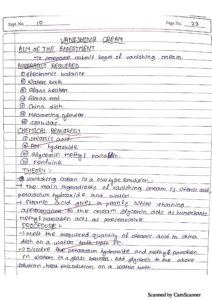 Expt. No. 10
Page No. 23
VANISHING CREAM
AIM OF THE EXPERIMENT
To prepare & submit 20gm of vanishing cream.
APPARATUS REQUIRED
① Electronic balance
② Water bath
③ Glass beaker
④ Glass rod
⑤ China dish
⑥ Measuring cylinder
⑦ Spatula
CHEMICAL REQUIRED
① Stearic acid
② Pot. hydroxide
③ Glycerin methyl paraben
④ Perfume
THEORY :-
Vanishing cream is a o/w type emulsion.
→ The main ingredients of vanishing cream is stearic acid
potassium hydroxide and water.
→ Stearic acid gives a pearly white shining
appearance to the cream glycerin acts as humectants
methyl paraben acts as preservative.
PROCEDURE :-
→ Melt the required quantity of stearic acid in china
dish on a water bath 70°C.
→ Dissolve the potassium hydroxide and methyl paraben
in water in a glass beaker. Add glycerin to the above
solution heat this solution on a water bath
Scanned by CamScanner